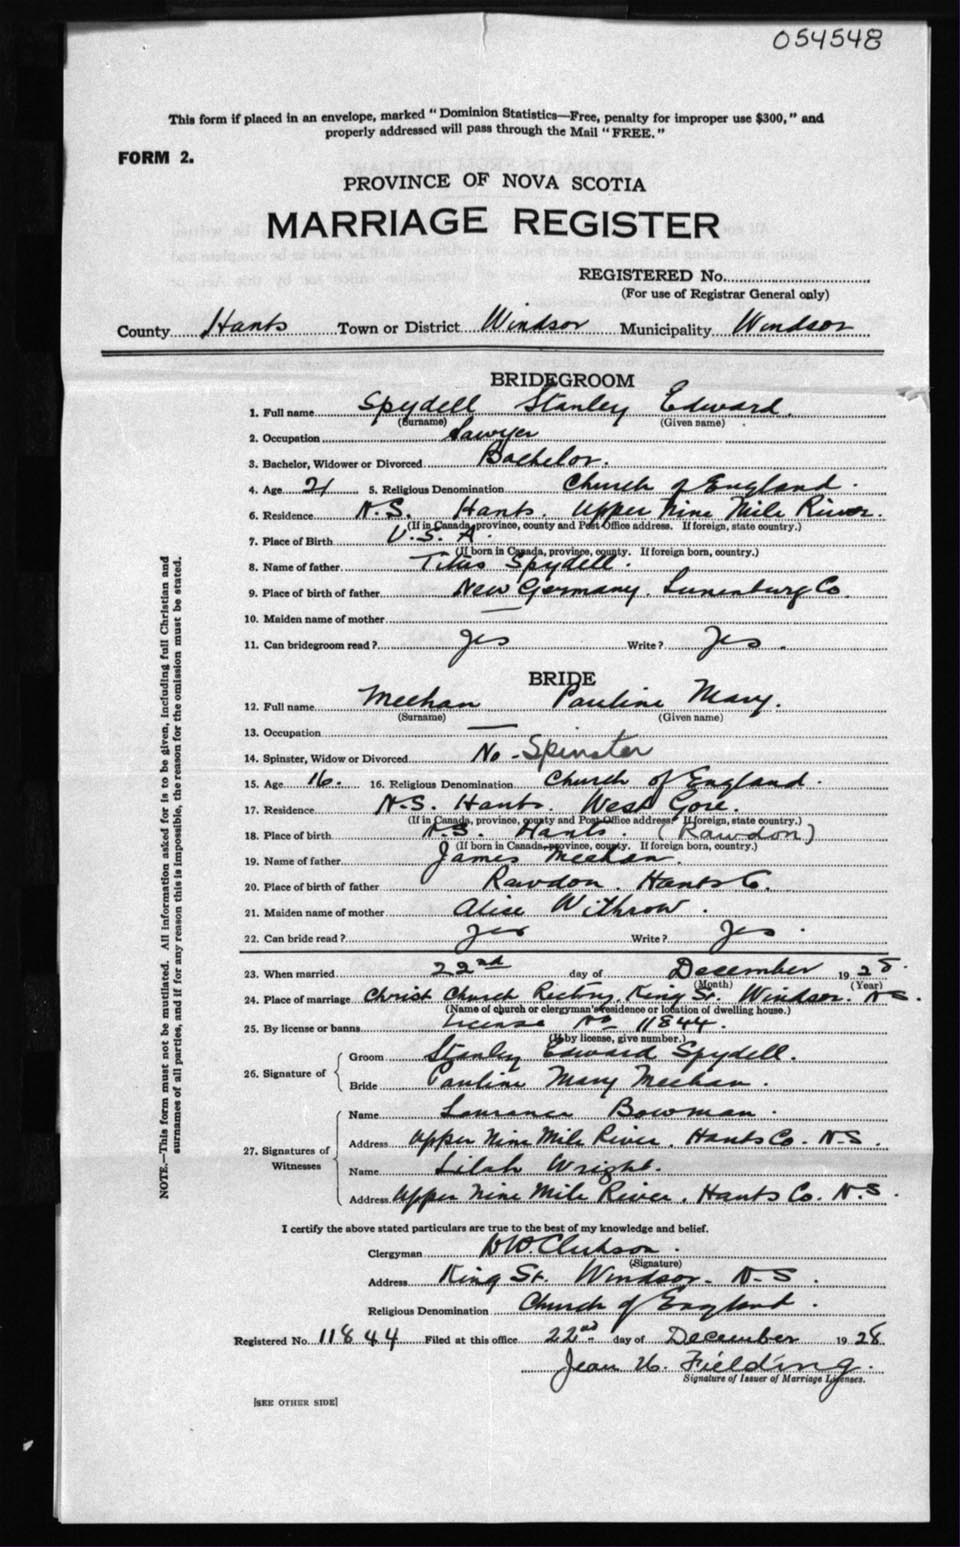 054548
This form if placed in an envelope, marked "Dominion Statistics—Free, penalty for improper use $300," and
properly addressed will pass through the Mail "FREE."
FORM 2.
PROVINCE OF NOVA SCOTIA
MARRIAGE REGISTER
REGISTERED No.
(For use of Registrar General only)
County Hants Town or District Windsor Municipality Windsor
BRIDEGROOM
1. Full name Spydell Stanley Edward.
(Surname) (Given name)
2. Occupation Sawyer
3. Bachelor, Widower or Divorced Bachelor.
4. Age 21 5. Religious Denomination Church of England.
6. Residence N.S. Hants. Upper Nine Mile River.
(If in Canada, province, county and Post Office address. If foreign, state country.)
7. Place of Birth U.S.A.
(If born in Canada, province, county. If foreign born, country.)
8. Name of father Titus Spydell.
9. Place of birth of father New Germany. Lunenburg Co.
10. Maiden name of mother —
11. Can bridegroom read? Yes Write? Yes.
BRIDE
12. Full name Meehan Pauline Mary.
(Surname) (Given name)
13. Occupation —
14. Spinster, Widow or Divorced No - Spinster
15. Age 16. 16. Religious Denomination Church of England.
17. Residence N.S. Hants. West Gore.
(If in Canada, province, county and Post Office address. If foreign, state country.)
18. Place of birth N.S. Hants. (Rawdon)
(If born in Canada, province, county. If foreign born, country.)
19. Name of father James Meehan.
20. Place of birth of father Rawdon. Hants Co.
21. Maiden name of mother Alice Withrow.
22. Can bride read? Yes Write? Yes.
23. When married 22nd day of December 1928.
(Month) (Year)
24. Place of marriage Christ Church Rectory, King St. Windsor. N.S.
(Name of church or clergyman's residence or location of dwelling house.)
25. By license or banns License No 11844.
(If by license, give number.)
26. Signature of
Groom Stanley Edward Spydell.
Bride Pauline Mary Meehan.
27. Signatures of Witnesses
Name Laurance Bowman.
Address Upper Nine Mile River. Hants Co. N.S.
Name Lilah Wright.
Address Upper Nine Mile River. Hants Co. N.S.
I certify the above stated particulars are true to the best of my knowledge and belief.
Clergyman
(Signature)
Address King St. Windsor. N.S.
Religious Denomination Church of England.
Registered No. 11844 Filed at this office 22nd day of December 1928
Jean U. Fielding.
Signature of Issuer of Marriage Licenses.
[SEE OTHER SIDE]
NOTE.—This form must not be mutilated. All information asked for is to be given, including full Christian and
surnames of all parties, and if for any reason this is impossible, the reason for the omission must be stated.